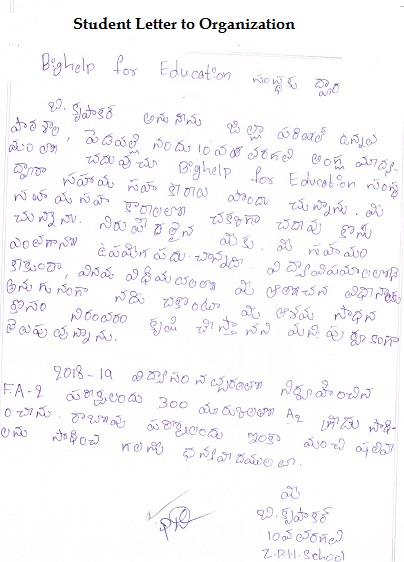 Student Letter to Organization
Bighelp for Education సంస్థకు ద్వారా
బి. కృపాకర్ అను నేను జిల్లా పరిషత్ ఉన్నత
పాఠశాల, పెదపల్లి నందు 10వ తరగతి ఆంగ్ల మాధ్య-
మంలో చదువుచు Bighelp for Education సంస్థ
ద్వారా సహాయ సహకారాలు పొందు చున్నాను. మీ
సహాయ సహకారాలతో చక్కగా చదువు కొను
చున్నాను. నిరుపేదలైన మీకు. మీ సహాయం
ఎంతగానో ఉపయోగ పడు చున్నది. విద్యావిషయాలలోనే
కాకుండా, వినయ విధేయలలో మీ ఆలోచన విధానాలకు
అనుగుణంగా నడు చుకొంటూ మీ ఆశయ సాధన
కొసం నిరంతరం కృషి చేస్తానని మనస్పుర్తూకంగా
తెలుపుతున్నాను.
2018-19 విద్యాసంవత్సరంలో నిర్వహించిన
F.A-2 పరీక్షలందు 300 మార్కులతో A2 గ్రేడు సాధి-
ంచాను. రాబోవు పరీక్షలందు ఇంకా మంచి ఫలితా
లను సాధించ గలను ధన్యవాదములతో.
మీ
బి. కృపాకర్
10వ తరగతి
Z.P.H.School